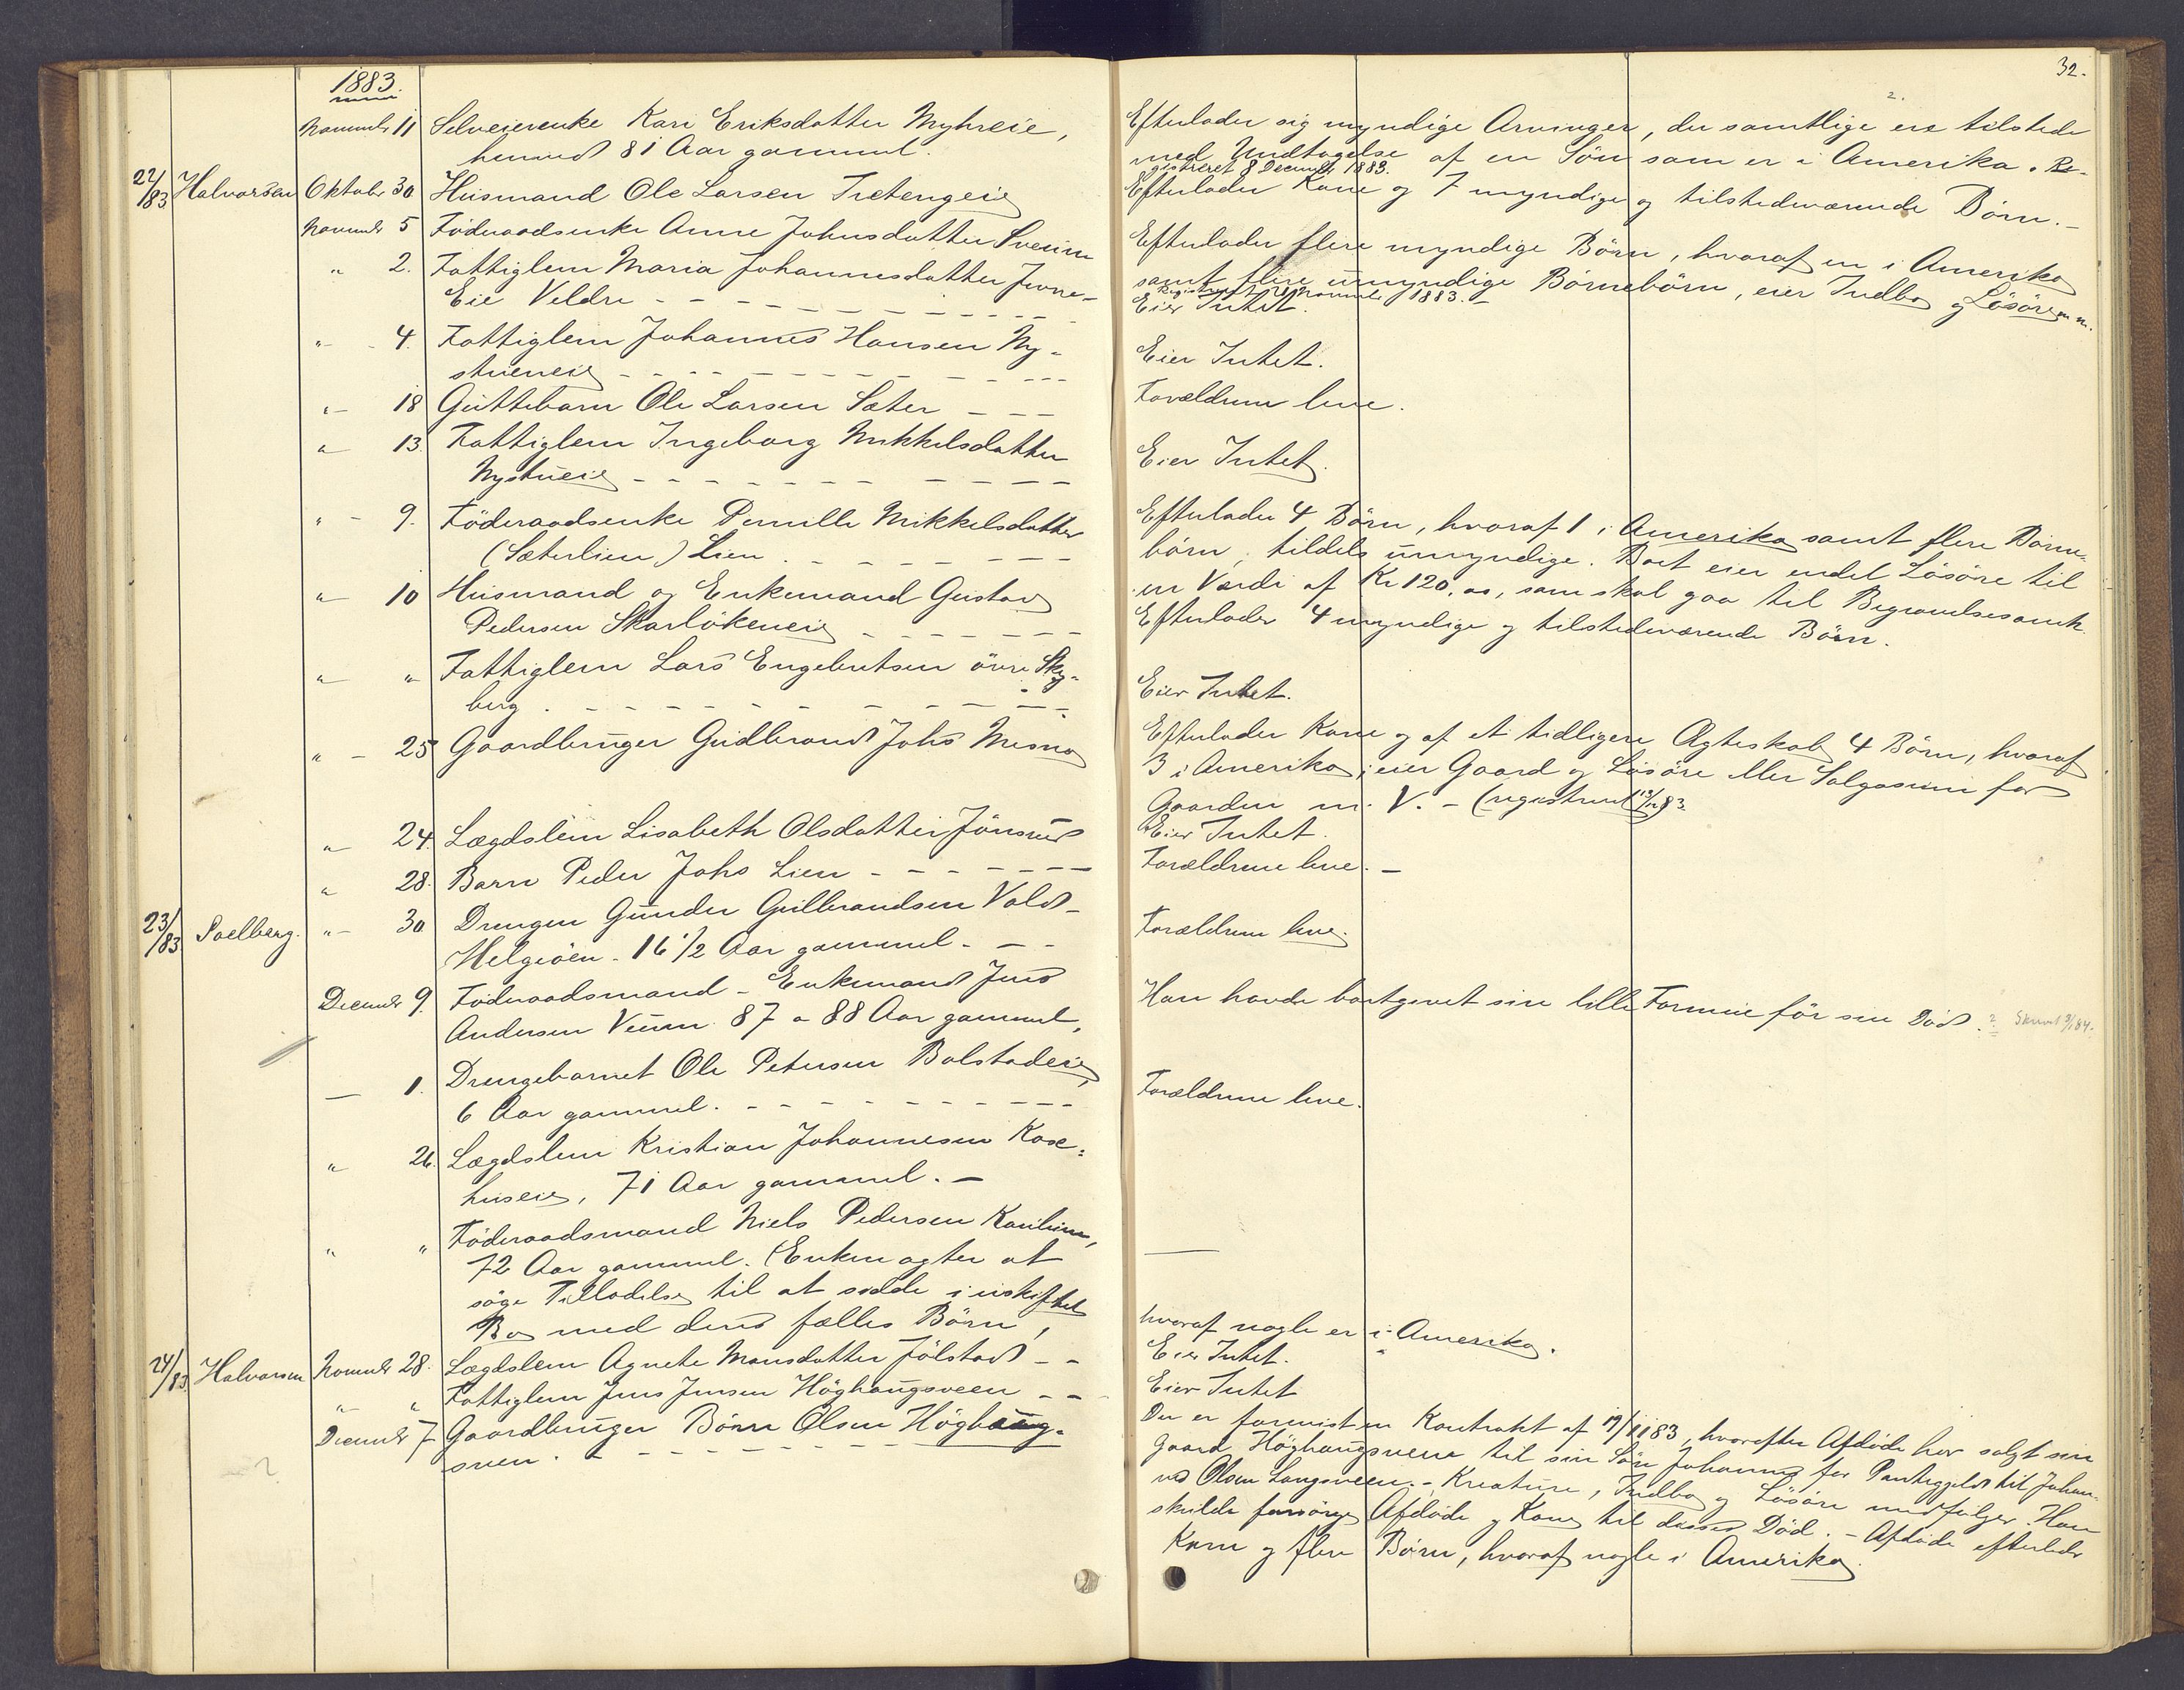 1883.
32.
Novembr 11 Selveierenke Kari Eriksdatter Myhreie,
henved 81 Aar gammel.
Efterlader sig myndige Arvinger, der samtlige ere tilstede
med Undtagelse af en Sön som er i Amerika. Re-
gistreret 8 Decembr 1883.
22/83 Halvorsen Oktobr 30 Husmand Ole Larsen Tretengeie
Efterlader Kone og 7 myndige og tilstedeværende Börn.
Novembr 5 Föderaadsenke Anne Johnsdatter Sveen
Efterlader flere myndige Börn, hvoraf en i Amerika
samt flere umyndige Börnebörn, eier Indbo og Lösöre m.m.
" 2. Fattiglem Maria Johannesdatter
Eie Veldre
Eier Intet.
" 4. Fattiglem Johannes Hansen Ny-
stueneie
Eier Intet.
" 18 Guttebarn Ole Larsen Sæter
Forældrene leve.
" 13. Fattiglem Ingeborg Mikkelsdatter
Nystueie
Eier Intet.
" 9. Föderaadsenke Pernille Mikkelsdatter
(Sæterlien) Lien
Efterlader 4 Börn, hvoraf 1 i Amerika samt flere Börne-
börn, tildels umyndige. Boet eier endel Lösöre til
en Værdi af Kr 120,00, som skal gaa til Begravelsesomk.
" 10 Husmand og Enkemand Gustav
Pedersen Skarlökeneie
Efterlader 4 myndige og tilstedeværende Börn.
" " Fattiglem Lars Engebretsen övre Sky-
berg
Eier Intet.
" 25 Gaardbruger Gudbrand Johs Mesna
Efterlader Kone og af et tidligere Ægteskab 4 Börn, hvoraf
3 i Amerika; eier Gaard og Lösöre eller Salgssum for
Gaarden m. V. - (registreret 13/12 83.
" 24. Lægdslem Lisabeth Olsdatter Jönsrud
Eier Intet.
" 28. Barn Peder Johs Lien
Forældrene leve. -
23/83 Saelberg. " 30 Drengen Gunder Gulbrandsen Vold-
Helgeöen. 16 1/2 Aar gammel.
Forældrene leve.
Decembr 9. Föderaadsmand - Enkemand Jens
Andersen Veum 87 a 88 Aar gammel,
Han havde bortgivet sin lille Formue för sin Död. ?
1. Drengebarnet Ole Petersen Bolstadeie,
6 Aar gammel.
Forældrene leve.
" 26. Lægdslem Kristian Johannesen
huseie, 71 Aar gammel. -
" " Föderaadsmand Niels Pedersen
72 Aar gammel. (Enken agter at
söge Tilladelse til at sidde i uskiftet
Bo med deres fælles Börn,
hvoraf nogle er i Amerika.
24/83 Halvorsen Novembr 28. Lægdslem Agnete Monsdatter Jölstad
Eier Intet.
" " Fattiglem Jens Jensen Höghaugsveen
Eier Intet
Decembr 7 Gaardbruger Börre Olsen Höghaug-
sveen.
Der er forevist en Kontrakt af 19/11 83, hvorefter Afdöde har solgt sin
Gaard Höghaugsveen til sin Sön Johannes for Pantegjeld til Johan-
nes Olsen Langsveen. - Kreature, Indbo og Lösöre medfölger. Han
skulde forsörge Afdöde og Kone til deres Död. - Afdöde efterlader
Kone og flere Börn, hvoraf nogle i Amerika.